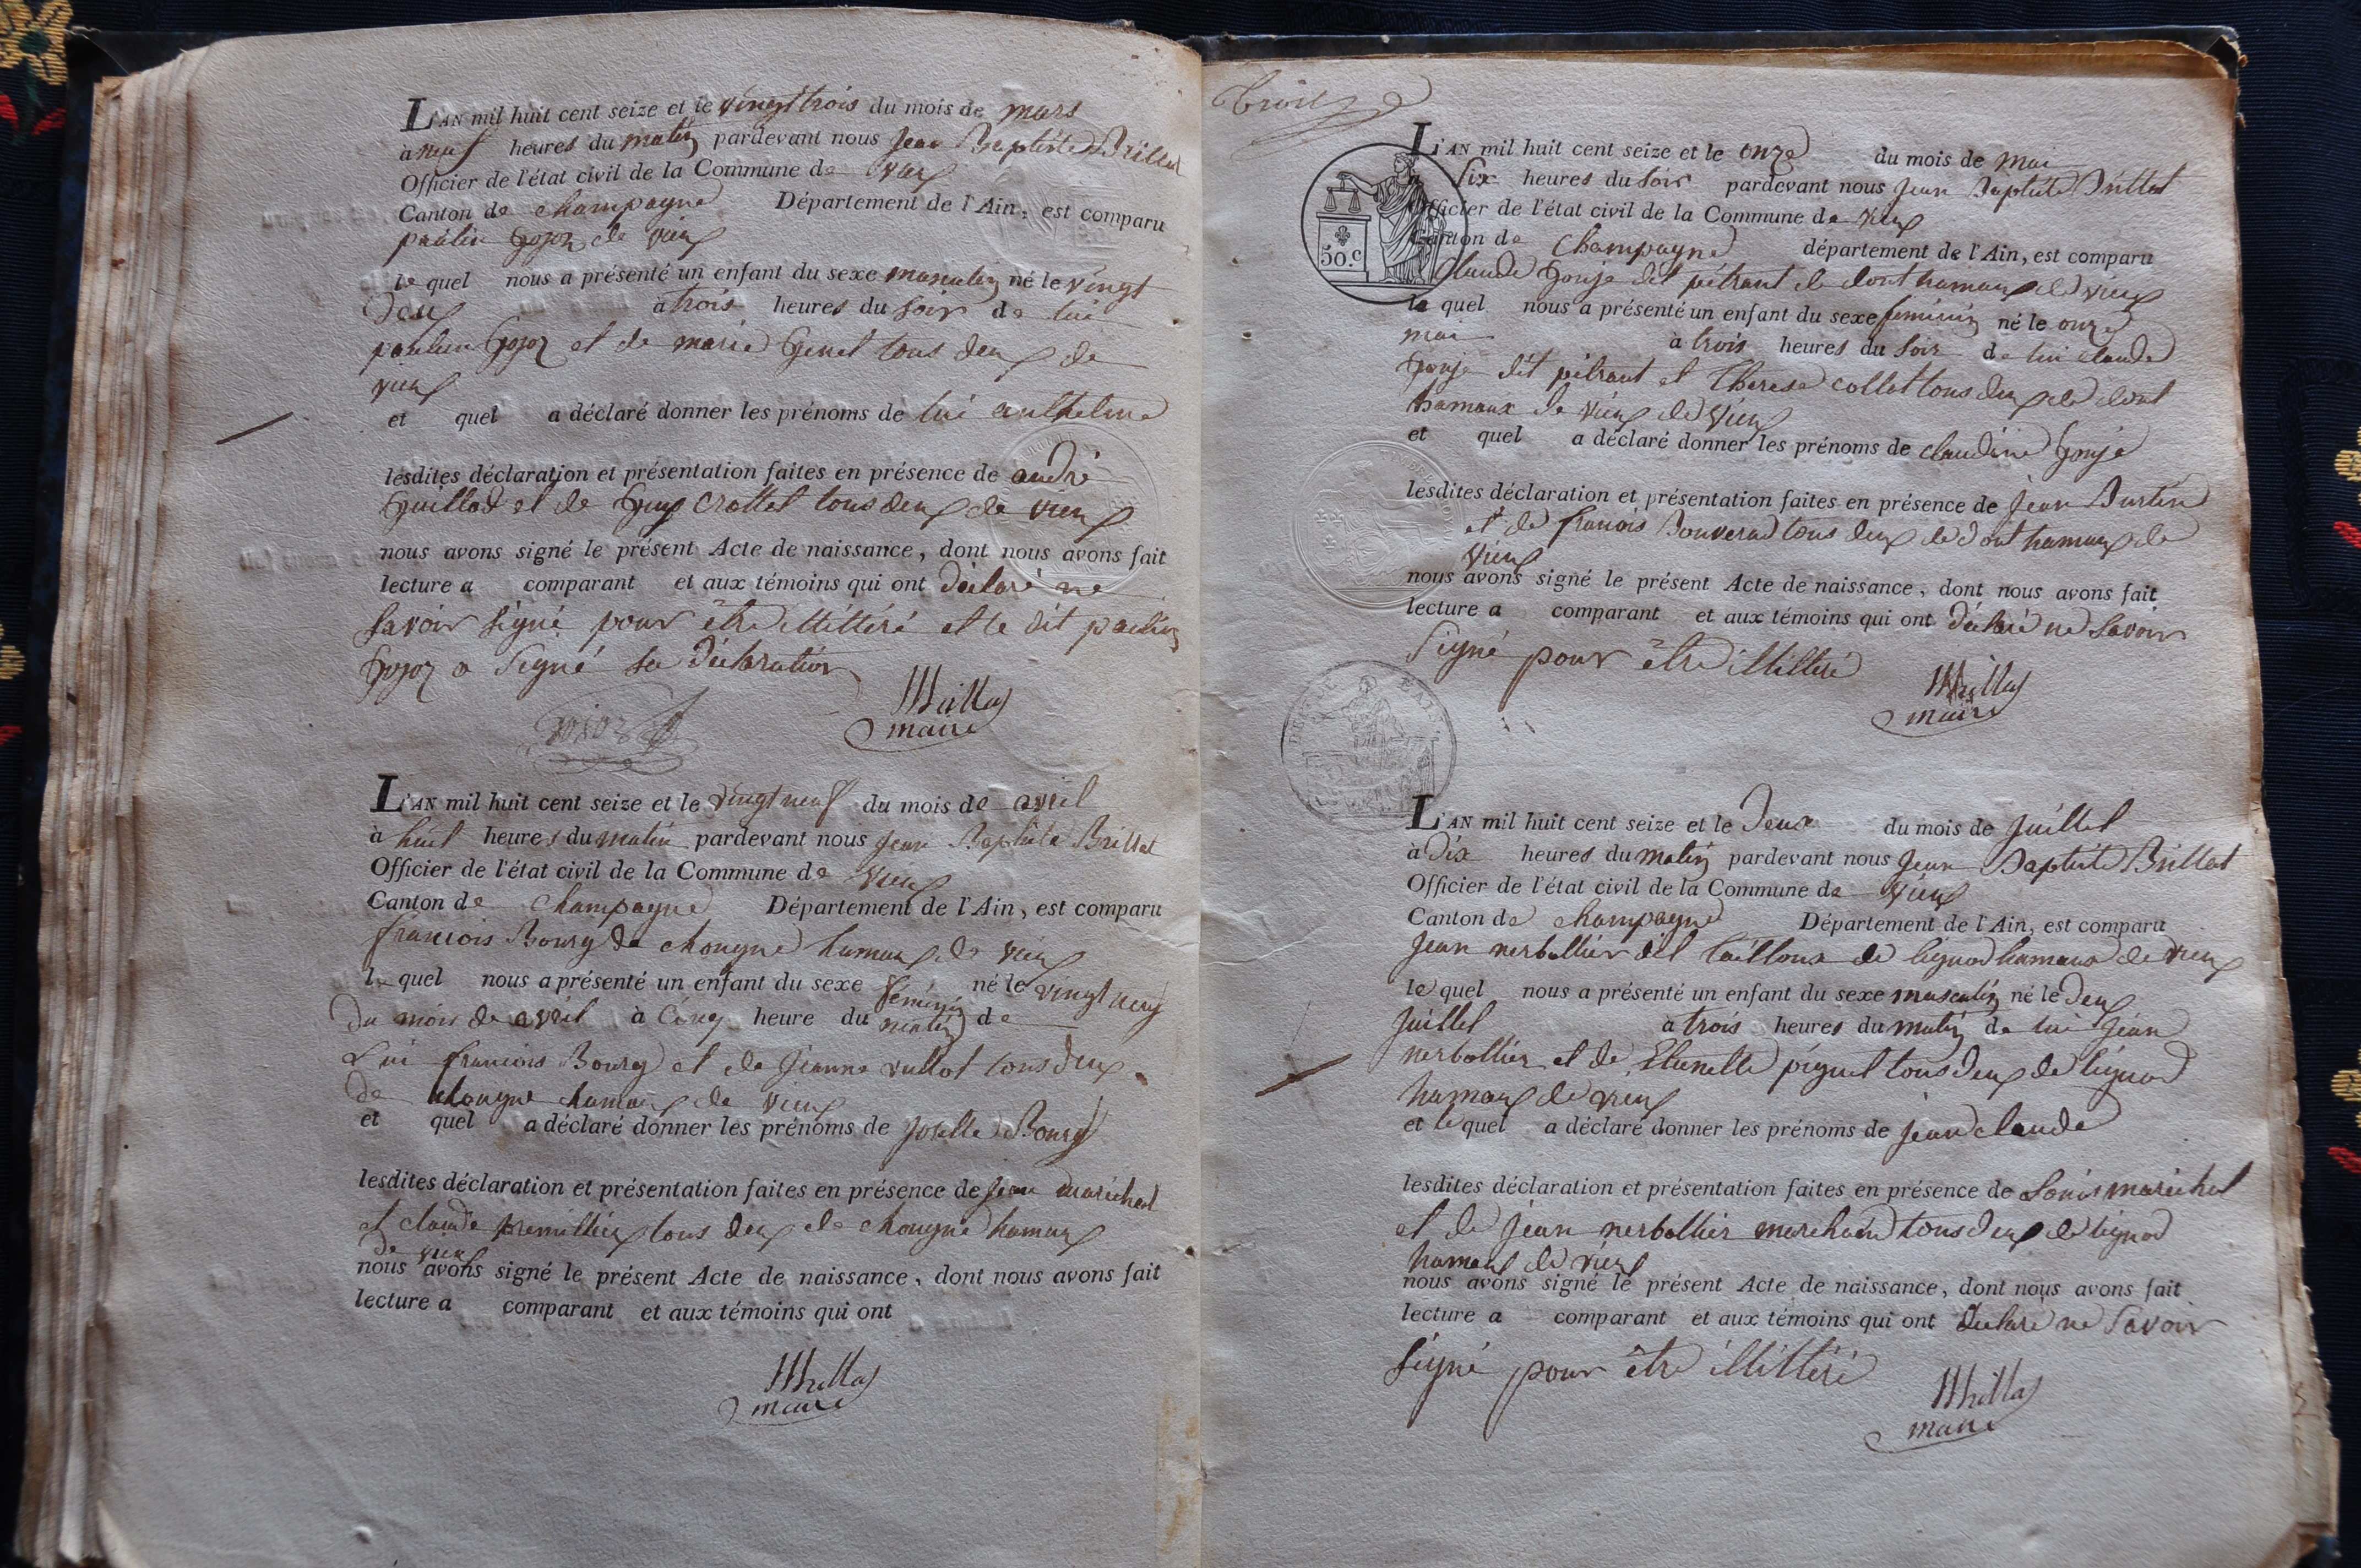 L'AN mil huit cent seize et le vingt trois du mois de mars
à neuf heures du matin pardevant nous Jean Baptiste Brillat
Officier de l'état civil de la Commune de vieux
Canton de champagne Département de l'Ain, est comparu
paulin Gojoz de vieux
le quel nous a présenté un enfant du sexe masculin né le vingt
deux à trois heures du soir de lui
paulin Gojoz et de marie Genet tous deux de
vieux
et quel a déclaré donner les prénoms de lui anthelme
lesdites déclaration et présentation faites en présence de andré
Guillod et de Guy Crottet tous deux de vieux
nous avons signé le présent Acte de naissance, dont nous avons fait
lecture a comparant et aux témoins qui ont déclaré ne
savoir signé pour être illittéré et le dit paulin
Gojoz a signé sa déclaration
Gojoz Brillat
maire
L'AN mil huit cent seize et le vingt neuf du mois de avril
à huit heures du matin pardevant nous Jean Baptiste Brillat
Officier de l'état civil de la Commune de vieux
Canton de champagne Département de l'Ain, est comparu
francois Bourg de chongne hamaux de vieux
le quel nous a présenté un enfant du sexe féminin né le vingt neuf
du mois de avril à cinq heure du matin de
Lui francois Bourg et de Jeanne vullot tous deux
de chongne hamaux de vieux
et quel a déclaré donner les prénoms de Josette Bourg
lesdites déclaration et présentation faites en présence de Jean maréchal
et claude premillieux tous deux de chongne hamaux
de vieux
nous avons signé le présent Acte de naissance, dont nous avons fait
lecture a comparant et aux témoins qui ont
Brillat
maire
trois
L'AN mil huit cent seize et le onze du mois de mai
à six heures du soir pardevant nous Jean Baptiste Brillat
Officier de l'état civil de la Commune de vieux
Canton de Champagne département de l'Ain, est comparu
50.c
Claude Gonje dit pétraut de dont hamaux de vieux
le quel nous a présenté un enfant du sexe féminin né le onze
mai à trois heures du soir de lui claude
Gonje dit pétraut et Therese collet tous deux de dont
hamaux de vieux de vieux
et quel a déclaré donner les prénoms de claudine Gonje
lesdites déclaration et présentation faites en présence de Jean Burtin
et de francois Bouverad tous deux de dont hamaux de
vieux
nous avons signé le présent Acte de naissance, dont nous avons fait
lecture a comparant et aux témoins qui ont déclaré ne savoir
signé pour être illittéré
Brillat
maire
L'AN mil huit cent seize et le deux du mois de Juillet
à dix heures du matin pardevant nous Jean Baptiste Brillat
Officier de l'état civil de la Commune de vieux
Canton de champagne Département de l'Ain, est comparu
Jean nerbollier dit tailloux de lignod hamaux de vieux
le quel nous a présenté un enfant du sexe masculin né le deux
Juillet à trois heures du matin de lui Jean
nerbollier et de Etiennette péguet tous deux de lignod
hamaux de vieux
et le quel a déclaré donner les prénoms de jean claude
lesdites déclaration et présentation faites en présence de Louis maréchal
et de jean nerbollier marchand tous deux de lignod
hamaux de vieux
nous avons signé le présent Acte de naissance, dont nous avons fait
lecture a comparant et aux témoins qui ont déclaré ne savoir
signé pour être illittéré
Brillat
maire